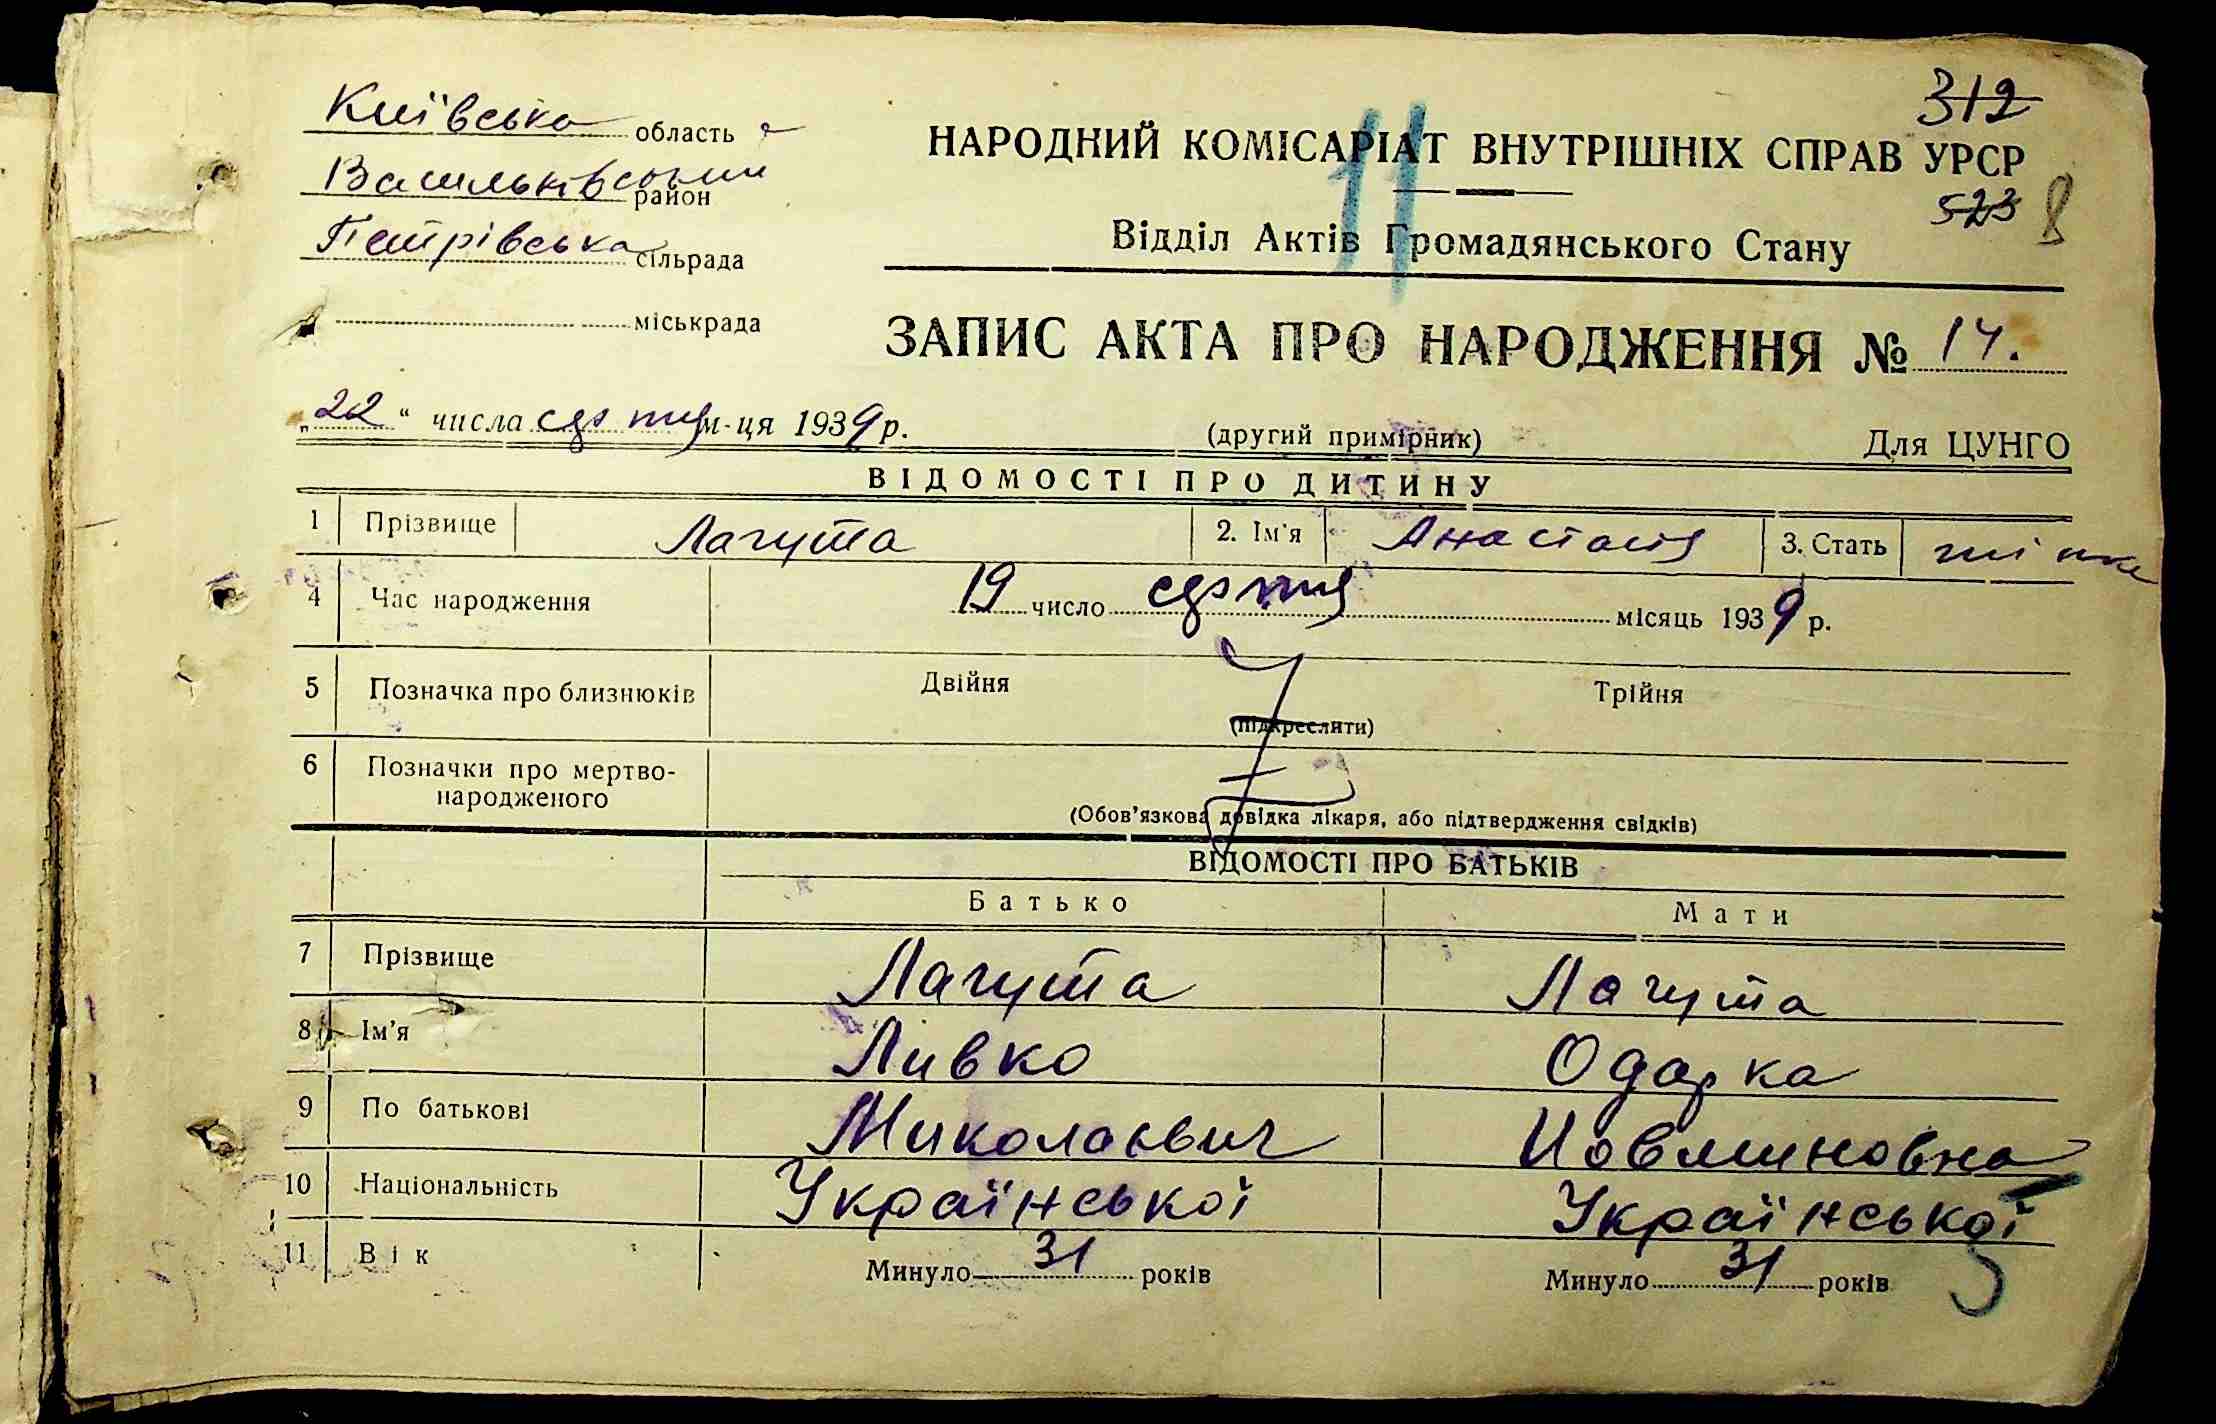 312
Київська область
Васильківський район
Петрівська сільрада
міськрада
НАРОДНИЙ КОМІСАРІАТ ВНУТРІШНІХ СПРАВ УРСР
11
523 8
Відділ Актів Громадянського Стану
ЗАПИС АКТА ПРО НАРОДЖЕННЯ № 14.
„22“ числа м-ця 1939 р.
(другий примірник)
Для ЦУНГО
ВІДОМОСТІ ПРО ДИТИНУ
1 Прізвище Лагута 2. Ім'я Анастасія 3. Стать
4 Час народження 19 число місяць 1939 р.
5 Позначка про близнюків Двійня Трійня
(підкреслити)
6 Позначки про мертво-
народженого
(Обов'язкова довідка лікаря, або підтвердження свідків)
ВІДОМОСТІ ПРО БАТЬКІВ
Батько Мати
7 Прізвище Лагута Лагута
8 Ім'я Ливко Одарка
9 По батькові Миколаєвич
10 Національність Української Української
11 Вік Минуло 31 років Минуло 31 років